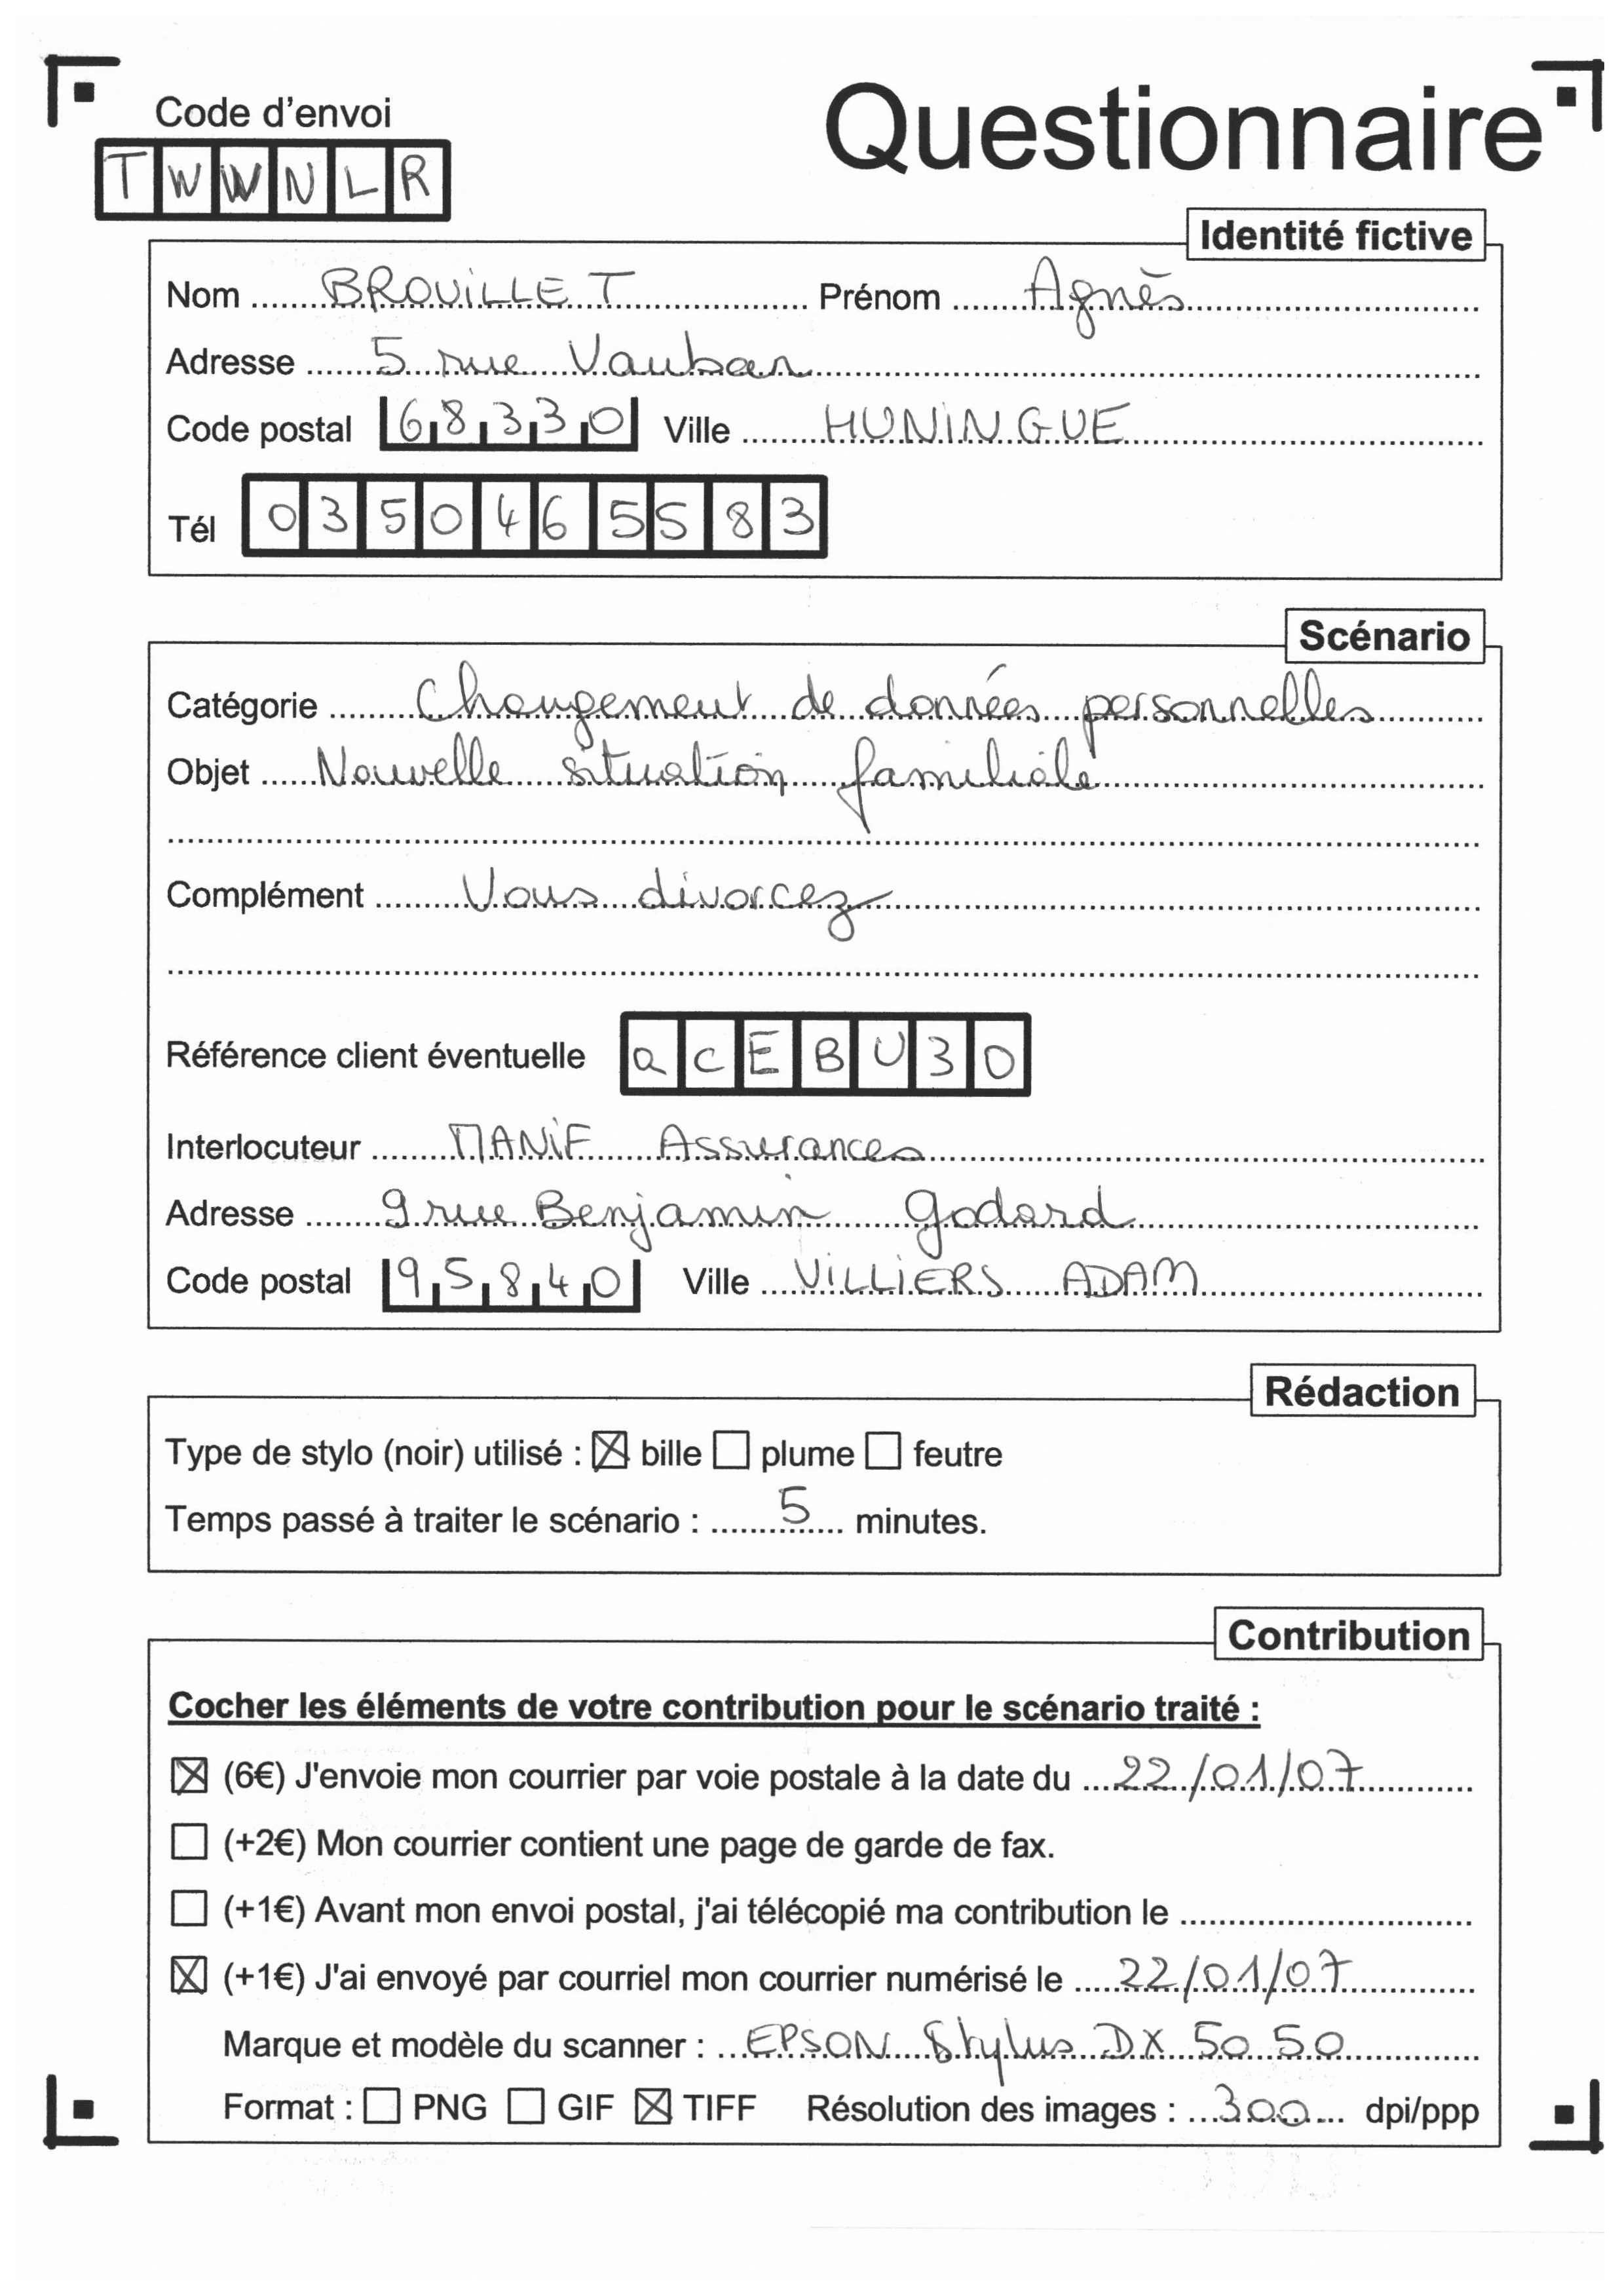 Code d'envoi
Questionnaire
TWWNLR
Identité fictive
Nom BROUILLET Prénom Agnès
Adresse 5 rue Vauban
Code postal 68330 Ville HUNINGUE
Tél 0350465583
Scénario
Catégorie Changement de données personnelles
Objet Nouvelle situation familiale
Complément Vous divorcez
Référence client éventuelle aCEBU30
Interlocuteur MANIF Assurances
Adresse 9 rue Benjamin Godard
Code postal 95840 Ville VILLIERS ADAM
Rédaction
Type de stylo (noir) utilisé : ☒ bille ☐ plume ☐ feutre
Temps passé à traiter le scénario : 5 minutes.
Contribution
Cocher les éléments de votre contribution pour le scénario traité :
☒ (6€) J'envoie mon courrier par voie postale à la date du 22/01/07
☐ (+2€) Mon courrier contient une page de garde de fax.
☐ (+1€) Avant mon envoi postal, j'ai télécopié ma contribution le
☒ (+1€) J'ai envoyé par courriel mon courrier numérisé le 22/01/07
Marque et modèle du scanner : EPSON Stylus DX 5050
Format : ☐ PNG ☐ GIF ☒ TIFF Résolution des images : 300 dpi/ppp